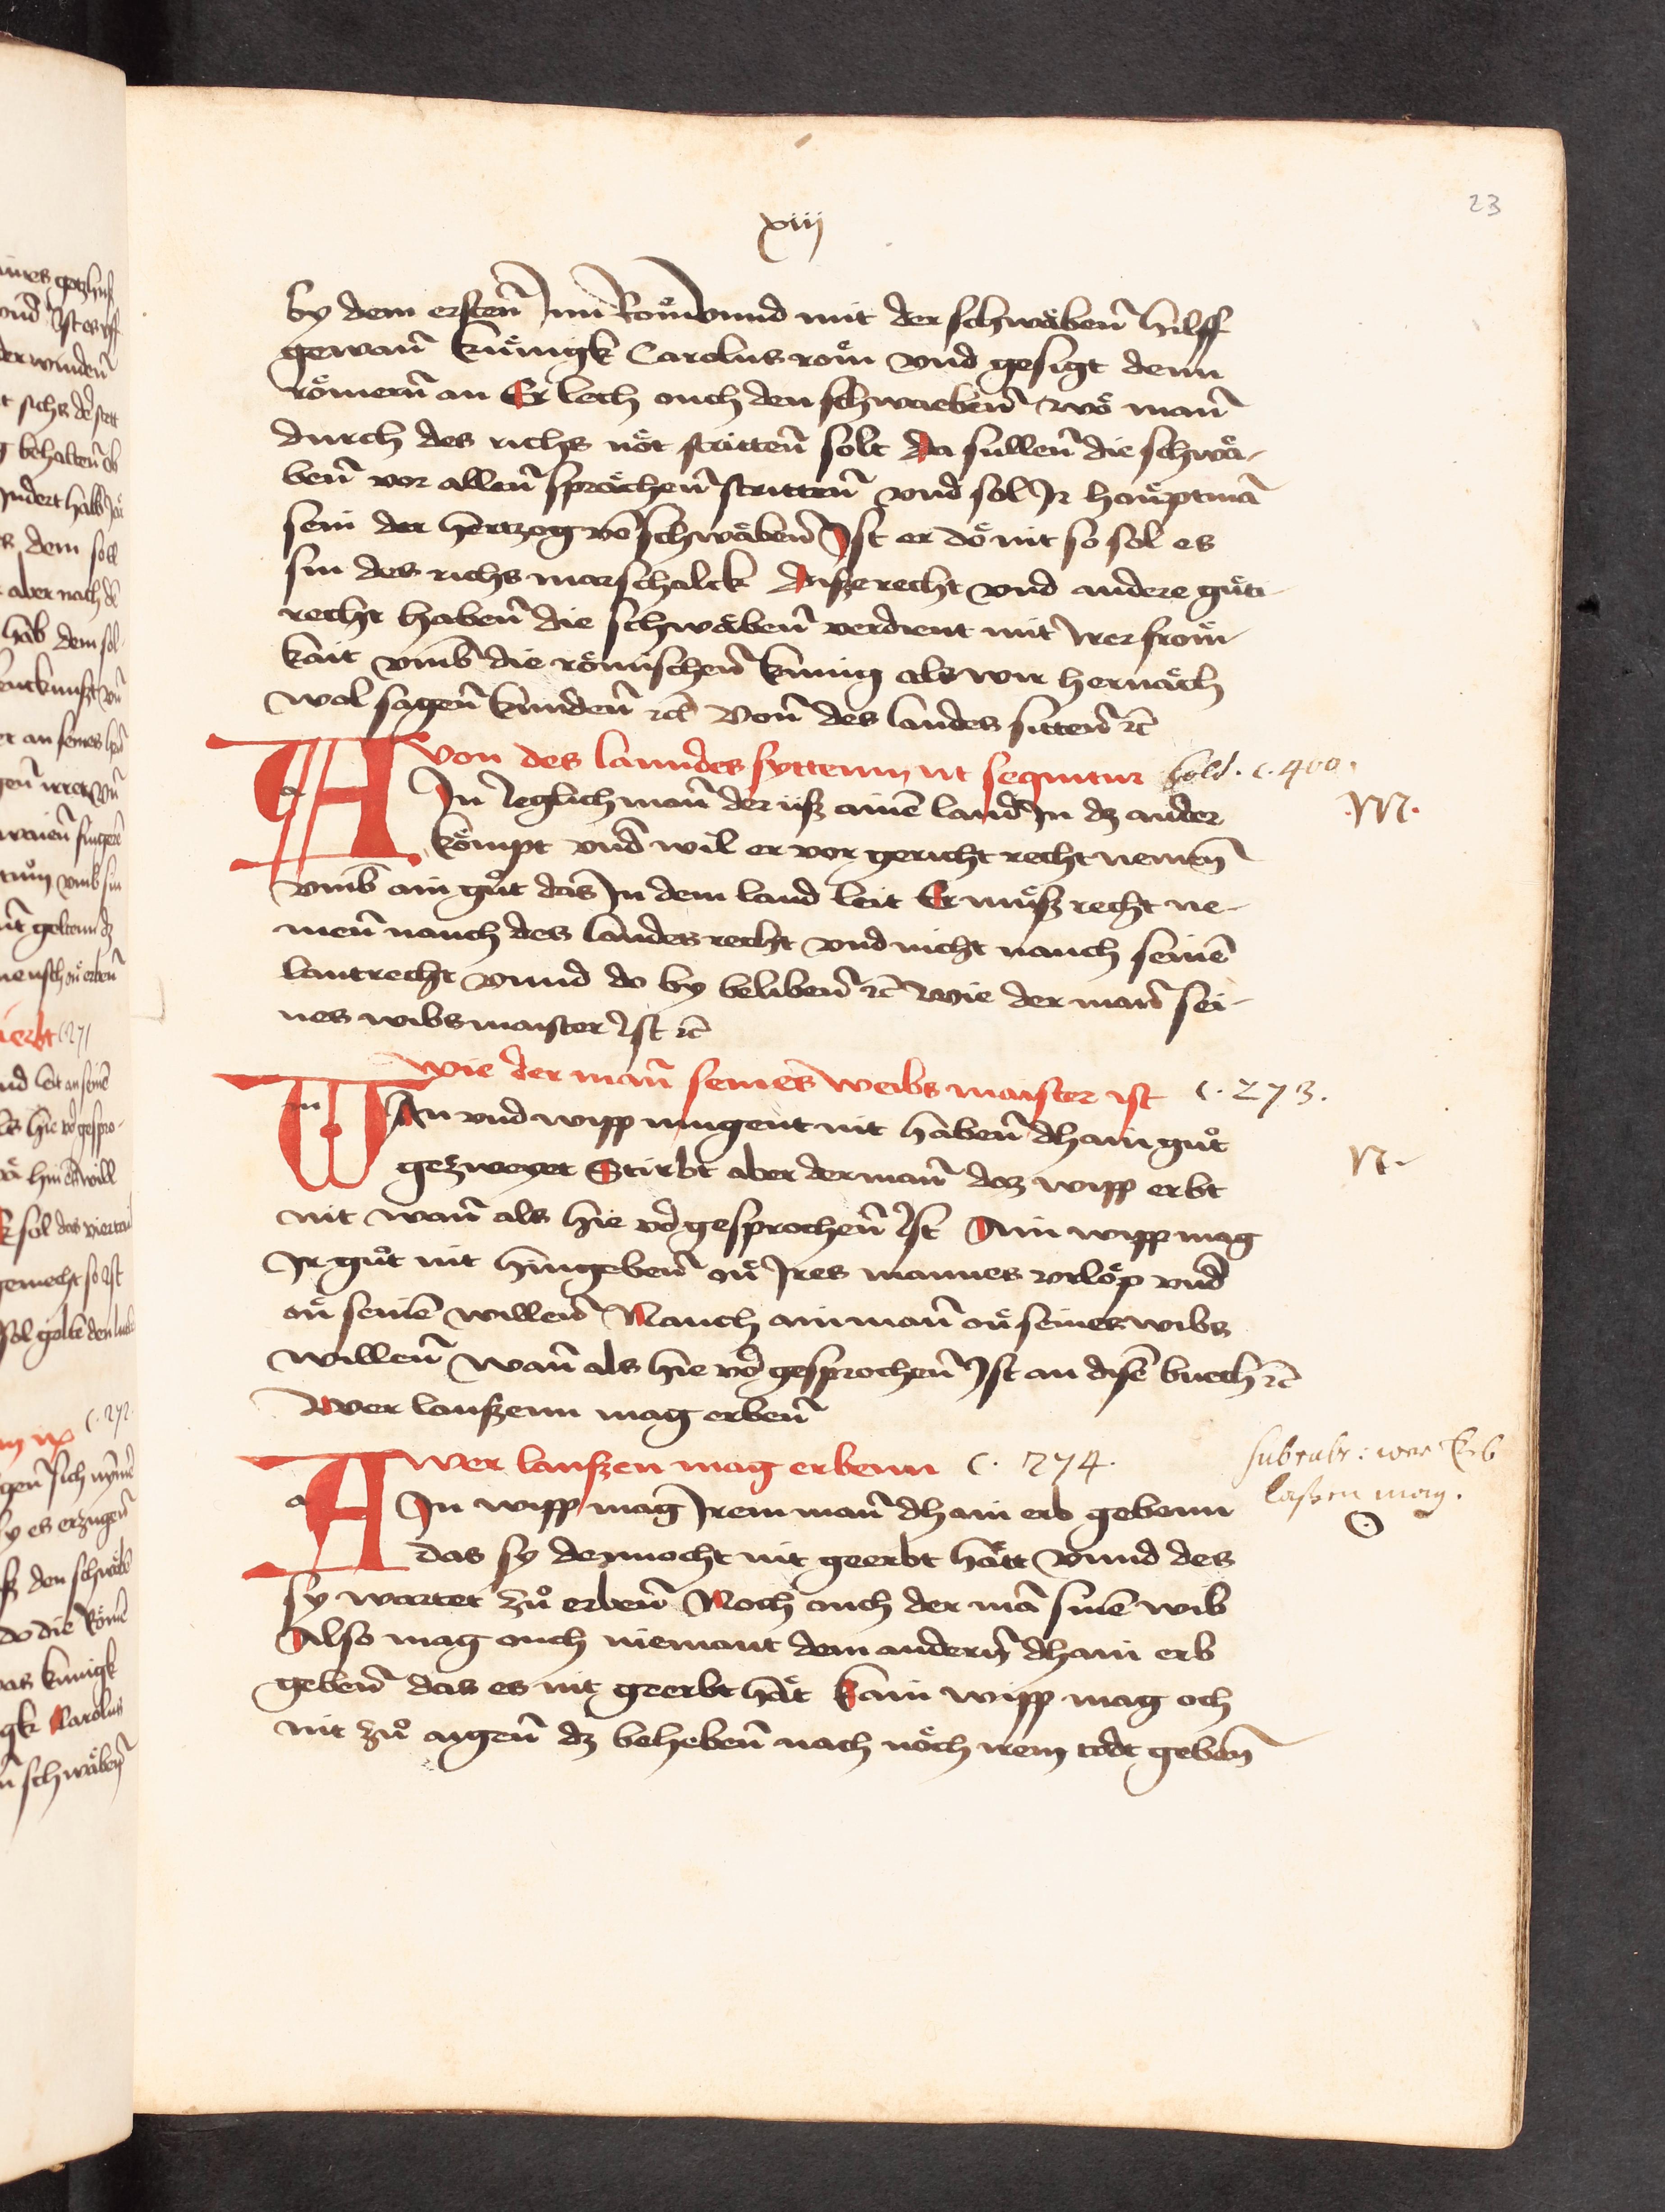 23
xiij
by dem ersten̄ Inn Rom̄ vnnd mit der schwäben̄ hilff
gewan̄ küngk Carolus rom̄ vnd gesigt denn
römern̄ an Er lech ouch den schwaeben̄ wö man̄
durch des richs nöt stritten̄ solt Da sullen̄ die schwä-
ben̄ vor allen̄ sprächen̄ stritten̄ vnd sol Ir hauptmā
sein der hertzog vō schwäben̄ Ist er dö nit so sol es
sin des richs marschalck Disze recht vnd andere güti
recht haben̄ die schwäben̄ verdient mit Irer from̄-
kait vmb die römischen̄ künig als wir hernäch
wol sagen̄ kunden̄ rc̄ Von̄ des landes sitten̄ rc̄
Von des lanndes syttenn vt sequitur Gold. c. 400.
a AIn Ieglich man̄ der üsz ainē land In dz ander .M.
kömpt vnd wil er vor gericht recht nemen̄
vmb ain gůt das In dem land leit Er můsz recht ne-
men̄ nauch des landes recht vnd nicht nauch seinē
lantrecht vnnd do by beliben̄ rc̄ Wie der man̄ sei-
nes wibs maister Ist rc̄
Wie der man̄ seines weibs maister ist c. 273.
m WAn vnd wipp mugent nit haben̄ dhain gůt
gezweyet Stirbt aber der man̄ daz wipp erbt N.
nit wan̄ als hie vō gesprochen̄ Ist Ain wipp mag
Ir gůt nit hingeben̄ on̄ Ires mannes vrlöp vnd
on̄ seinē willen̄ Nauch ain man̄ on̄ seines wibs
willen̄ wan̄ als hie vō gesprochen̄ Ist an disē buech rc̄
Wer lauszenn mag erben̄
Wer lauszen mag erbenn c. 274. subrubr: wer Erb
laszen mag.
O
a AIn wipp mag Irem man̄ dhain erb gebenn
das sy dennocht nit geerbt hätt vnnd des
sy wartet zů erben̄ Noch ouch der mā sinē wib
Also mag ouch niemant dem andern̄ dhain erb
geben̄ das es nit geerbt hät kain wipp mag och
nit zů aigen̄ dz beheben̄ nach nöch irem todt geben̄